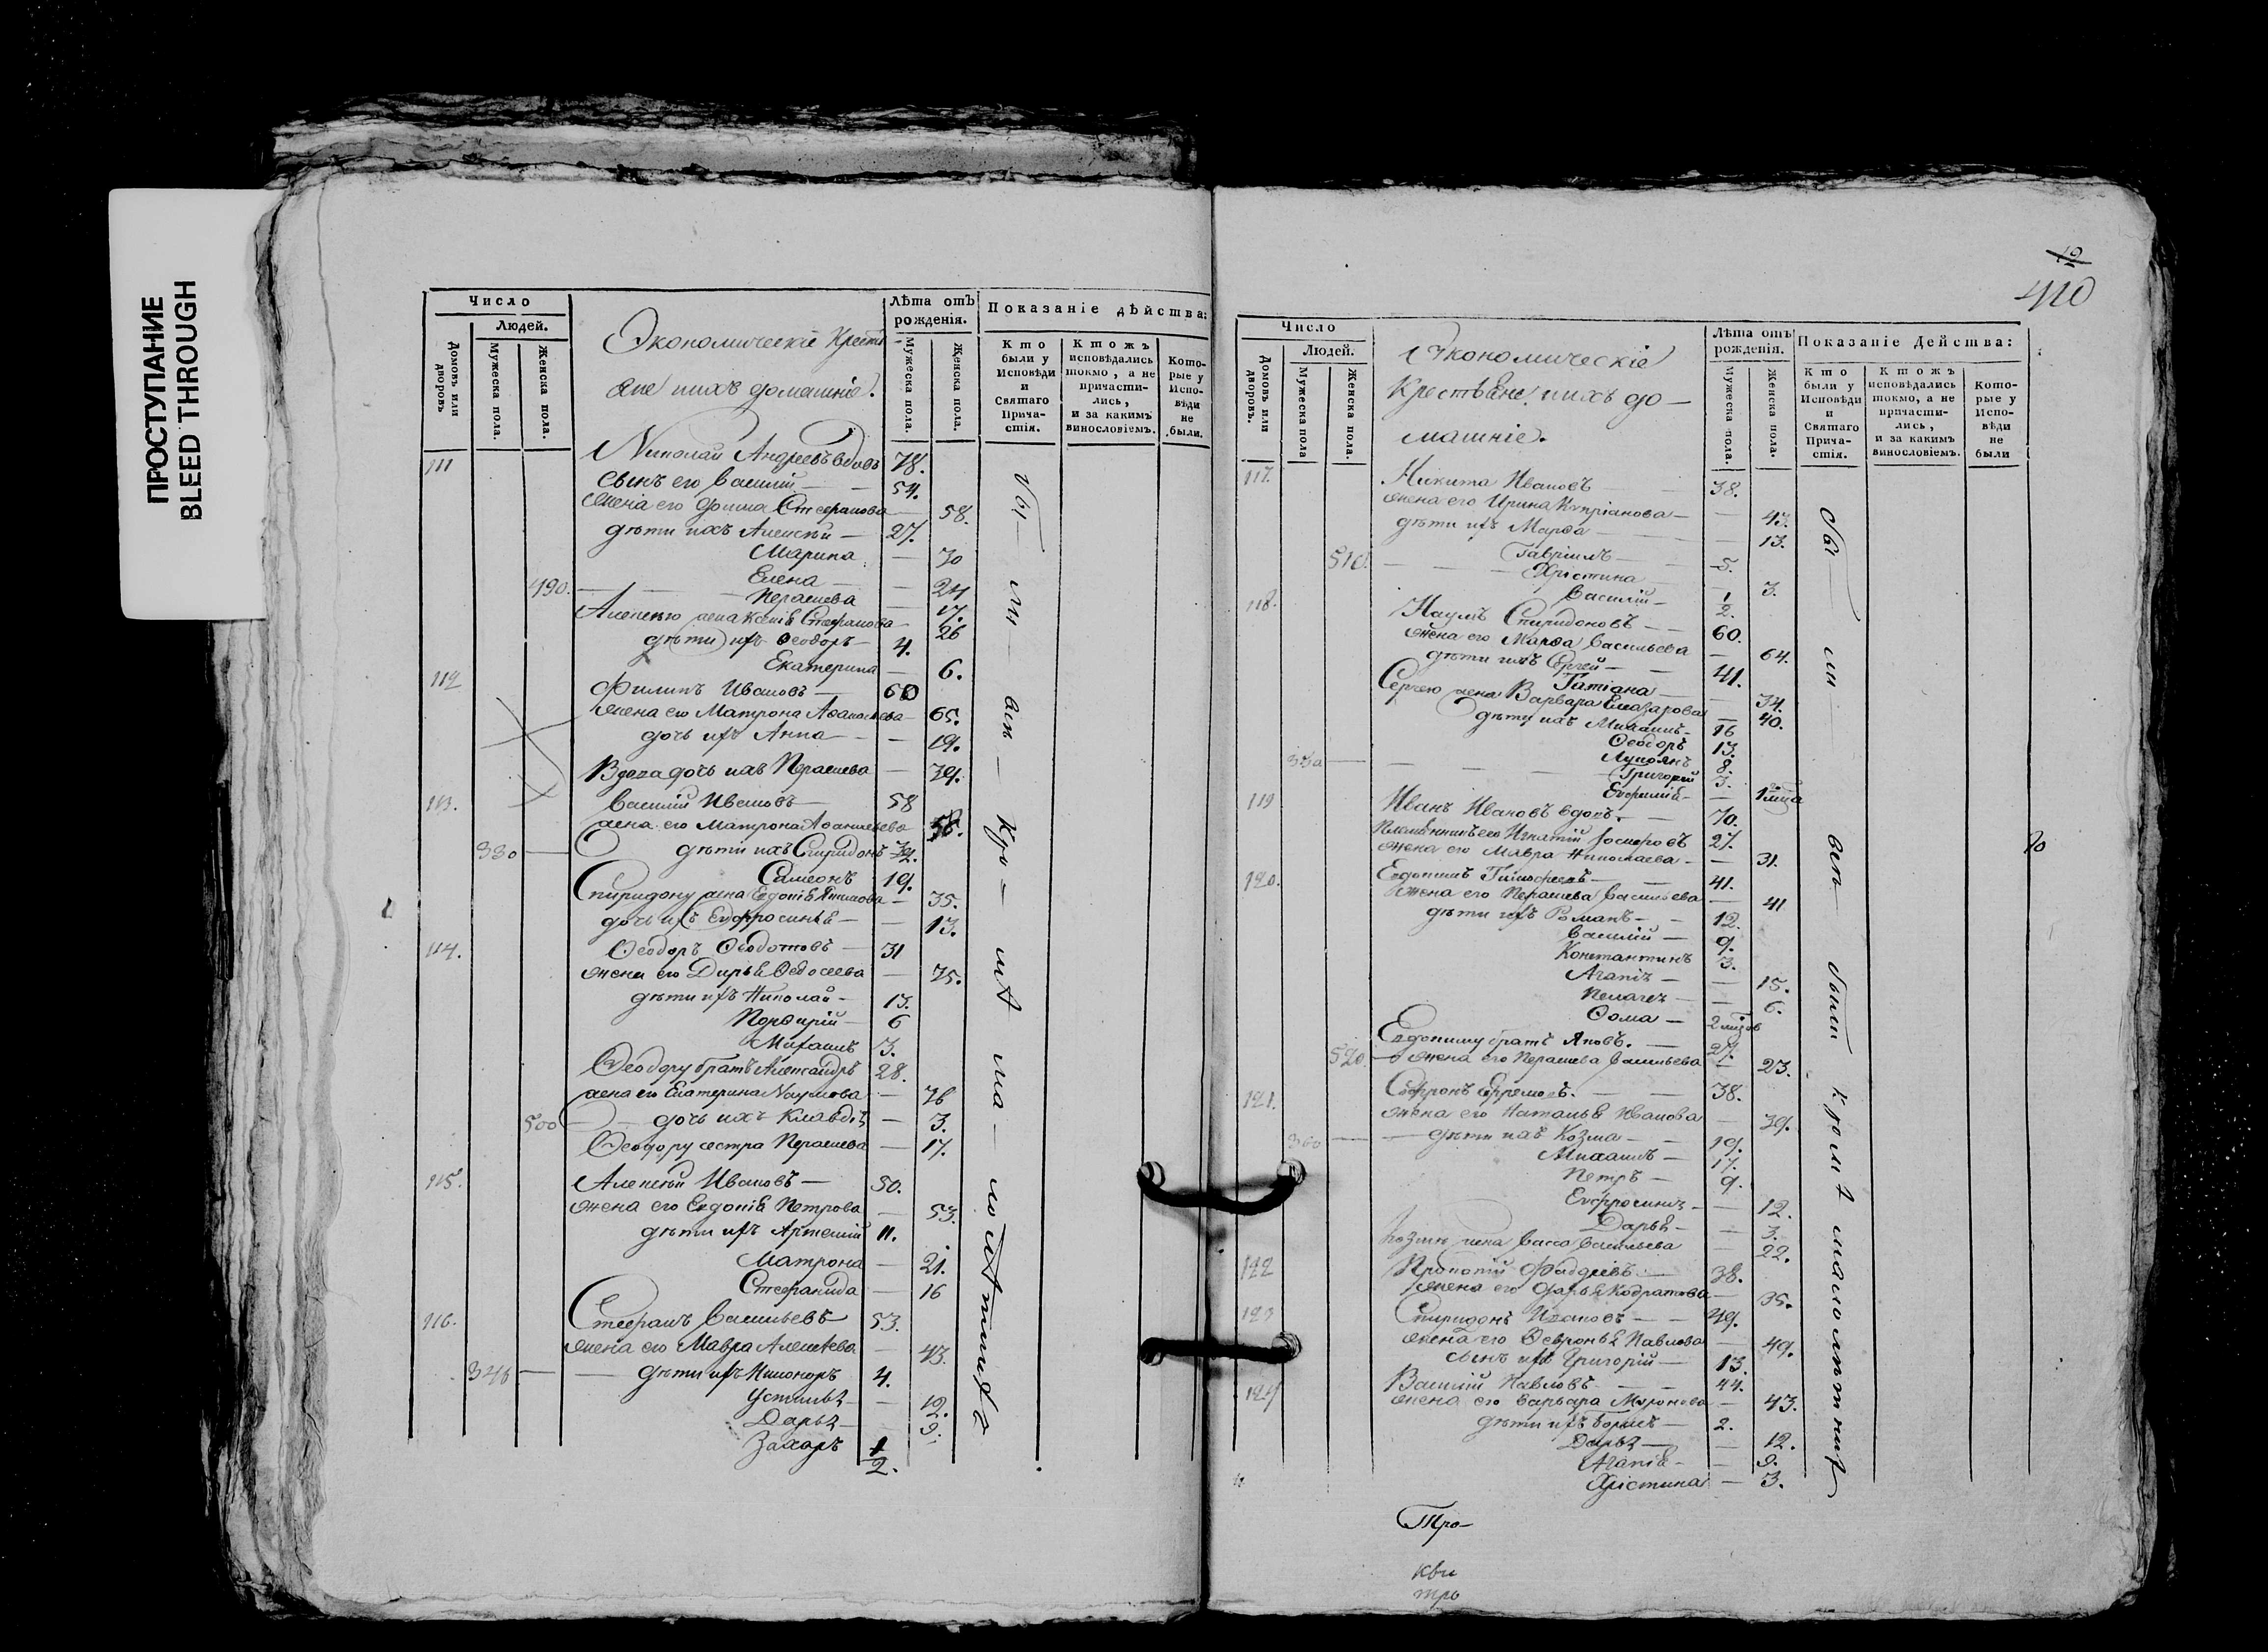 ПРОСТУПАНИЕ
BLEED THROUGH
Число
Людей.
Домовъ или дворовъ
Мужеска пола.
Женска пола.
Экономическіе Кресть-
яне ихъ домашніе.
Лѣта отъ рожденія.
Мужеска пола.
Женска пола.
Показаніе дѣйства:
Кто были у Исповѣди и Святаго Причастія.
Ктожъ исповѣдались токмо, а не причастились, и за какимъ винословіемъ.
Которые у Исповѣди не были.
111 Николай Андреевъ вдовъ 78.
сынъ его Василій — 54.
жена его Стефанова — 58.
дѣти ихъ Алексѣй — 27.
Марина — 30
Елена — 24
490. — Парасцева — 17.
Алексѣю жена Стефанова — 26
дѣти ихъ Ѳеодоръ — 4.
Екатерина — 6.
112 Филипъ Ивановъ — 60
жена его Матрона Аѳанасьева — 65.
дочь ихъ Анна — 19.
Вдова дочь ихъ Парасцева — 39.
113. Василій Ивановъ — 58
жена его Матрона — 58.
330 — дѣти ихъ Спиридонъ
Самсонъ 19.
Спиридону жена Евдокіѣ — 35.
дочь ихъ Евфросиньѣ — 13.
114. Ѳеодоръ Ѳеодотовъ — 31
жена его Дарьѣ Ѳедосеева — 35.
дѣти ихъ Николай — 13.
Порфирій — 6
Михаилъ 3.
Ѳеодору братъ Александръ 28.
жена его Екатерина Наумова — 36
500 — дочь ихъ Клавдіѣ — 3.
Ѳеодору сестра Парасцева — 17.
115. Алексѣй Ивановъ — 50.
жена его Евдокіѣ Петрова — 53.
дѣти ихъ Артемій 11.
Матрона — 21.
Стефанида — 16
116. Стефанъ Васильевъ 53.
жена его Мавра Алексѣева — 43.
340 — дѣти ихъ Никоноръ 4.
Устиньѣ — 12.
Дарьѣ — 9.
Захаръ 1/2.
бы — ли — всѣ — кро — мѣ ма — лолѣтныхъ
10
410
Число
Людей.
Домовъ или дворовъ.
Мужеска пола
Женска пола.
Экономическіе
Крестьяне ихъ до-
машніе.
Лѣта отъ рожденія.
Мужеска пола.
Женска пола.
Показаніе Дейсшва:
Кто были у Исповѣди и Святаго Причастія.
Ктожъ исповѣдались токмо, а не причастились, и за какимъ винословіемъ.
Которые у Исповѣди не были
117. Никита Ивановъ 38.
жена его Ирина Купріанова — 43.
дѣти ихъ Марѳа — 13.
Гавріилъ — 5.
510 — Христина — 3.
Василій — 1/2.
118. Наумъ Спиридоновъ — 60.
жена его Марѳа Васильева — 64.
дѣти ихъ Сергей — 41.
Татіана — 34.
Сергею жена Варвара Елеазарова — 40.
дѣти ихъ Михаилъ — 16
Ѳеодоръ 13.
Лукоянъ 8.
350 — Григорій 3.
119 Иванъ Ивановъ вдовъ. — 70.
Племянникъ его Игнатій 27.
жена его Мавра Николаева — 31.
120. Евдокимъ Тимоѳеевъ — 41.
жена его Парасцева Васильева — 41
дѣти ихъ Романъ — 12.
Василій — 9.
Константинъ 3.
Агапіѣ — 15.
Пелагеѣ — 6.
Ѳома —
Евдокиму братъ Яковъ. — 27.
520 — жена его Парасцева Васильева — 23.
121. Софронъ Ефремовъ. — 38.
жена его Натальѣ Иванова — 39.
360 — дѣти ихъ Козма — 19.
Михаилъ — 17.
Петръ — 9.
Евфросиньѣ — 12.
Дарьѣ — 3.
Козмѣ жена Васса Васильева — 22.
122 Прокопій Фадѣевъ — 38.
жена его Дарьѣ Кодратова — 35.
123 Спиридонъ Ивановъ — 49.
жена его Ѳевроньѣ Павлова — 49.
сынъ ихъ Григорій — 13
124 Василій Павловъ — 44.
жена его Варвара Миронова — 43.
дѣти ихъ Борисъ — 2.
Дарьѣ — 12.
Агапіѣ — 9.
Христина — 3.
бы — ли — всѣ — были кромѣ малолѣтныхъ
Тро-
кви
тро